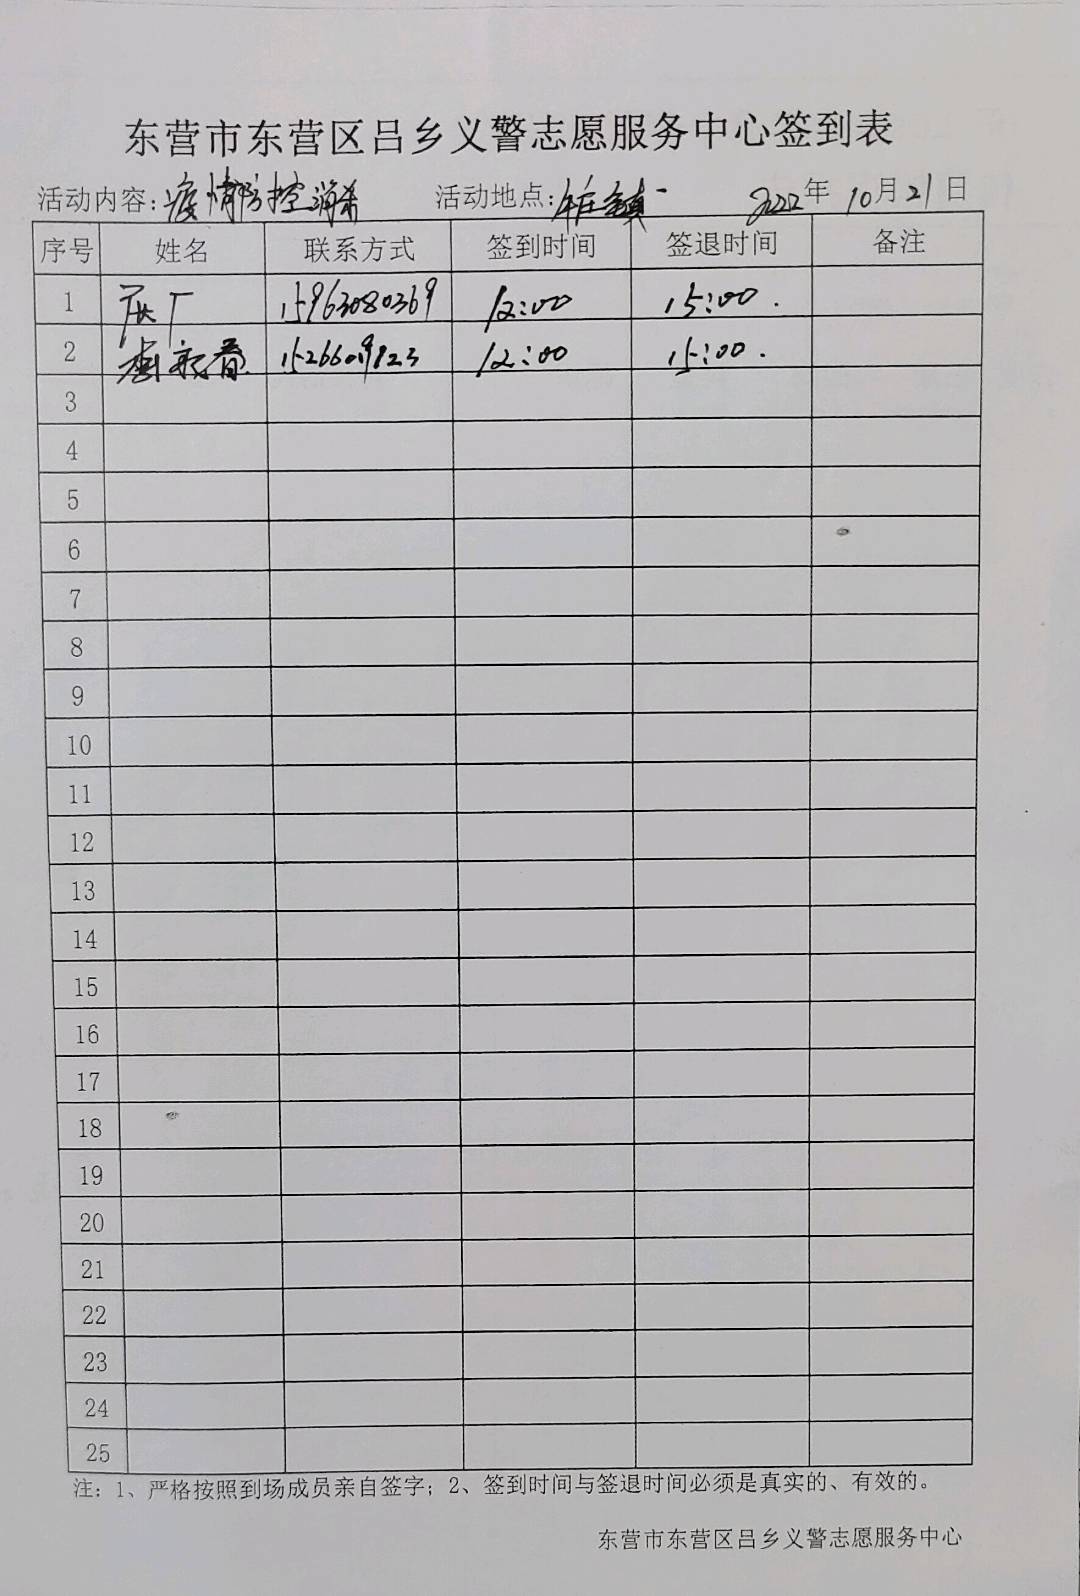 东营市东营区吕乡义警志愿服务中心签到表
活动内容:疫情防控消杀 活动地点:牛庄镇 2022年10月21日
序号 姓名 联系方式 签到时间 签退时间 备注
1 15963080369 12:00 15:00.
2 12:00 15:00.
3
4
5
6
7
8
9
10
11
12
13
14
15
16
17
18
19
20
21
22
23
24
25
注:1、严格按照到场成员亲自签字;2、签到时间与签退时间必须是真实的、有效的。
东营市东营区吕乡义警志愿服务中心